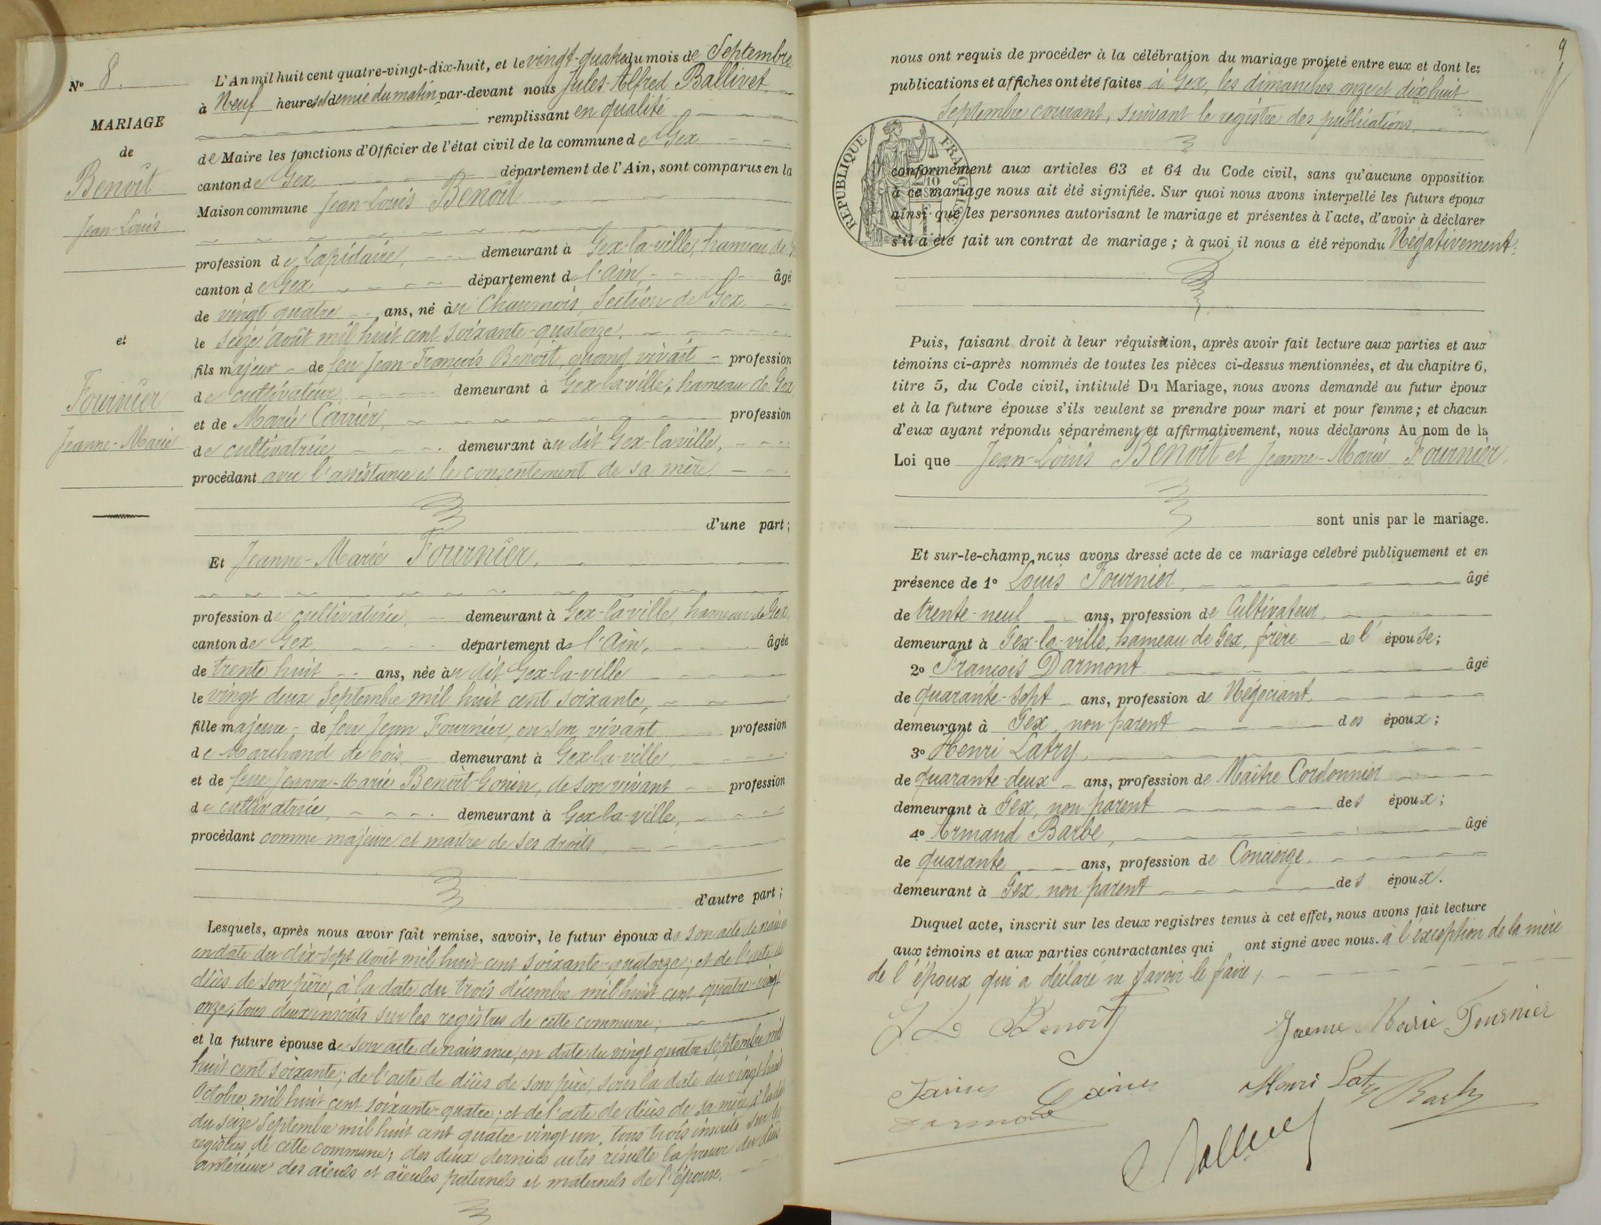 N° 8.
MARIAGE
de
Benoît
Jean-Louis
et
Fournier
Jeanne-Marie
L'An mil huit cent quatre-vingt-dix-huit, et le vingt-quatre du mois de Septembre
à Neuf heures et demie du matin par-devant nous Jules-Alfred Ballivet
remplissant en qualité
de Maire les fonctions d'Officier de l'état civil de la commune de Gex
canton de Gex département de l'Ain, sont comparus en la
Maison commune Jean-Louis Benoît
profession de Lapidaire, demeurant à Gex-la-ville, hameau de
canton de Gex département de l'Ain, âgé
de vingt quatre ans, né au Chaumois, Section de Gex
le seize août mil huit cent soixante-quatorze,
fils majeur de feu Jean-François Benoît, quand vivait profession
de cultivateur demeurant à Gex-la-ville, hameau de Gex
et de Marie Carrier, profession
de cultivatrice demeurant au dit Gex-la-ville,
procédant avec l'assistance et le consentement de sa mère
d'une part;
Et Jeanne-Marie Fournier,
profession de cultivatrice, demeurant à Gex-la-ville hameau de Gex,
canton de Gex département de l'Ain, âgée
de trente huit ans, née au dit Gex-la-ville
le vingt deux Septembre mil huit cent soixante,
fille majeure de feu Jean Fournier, en son vivant profession
de Marchand de bois demeurant à Gex-la-ville
et de feue Jeanne-Marie Benoit-Gonin, de son vivant profession
de cultivatrice, demeurant à Gex-la-ville,
procédant comme majeure et maitre de ses droits
d'autre part;
Lesquels, après nous avoir fait remise, savoir, le futur époux de son acte de naissance
en date du dix-sept août mil huit cent soixante-quatorze; et de l'acte de
décès de son père, à la date du trois décembre mil huit cent quatre-vingt
onze, tous deux inscrits sur les registres de cette commune;
et la future épouse de son acte de naissance, en date du vingt quatre septembre mil
huit cent soixante; de l'acte de décès de son père, sous la date du vingt huit
Octobre mil huit cent soixante-quatre; et de l'acte de décès de sa mère, à la date
du seize Septembre mil huit cent quatre vingt un, tous trois inscrits sur les
registres de cette commune; des deux derniers actes résulte la preuve du décès
antérieur des aïeuls et aïeules paternels et maternels de l'épouse.
9
nous ont requis de procéder à la célébration du mariage projeté entre eux et dont les
publications et affiches ont été faites à Gex, les dimanches onze et dix huit
Septembre courant, suivant le registre des publications
RÉPUBLIQUE FRANÇAISE
conformément aux articles 63 et 64 du Code civil, sans qu'aucune opposition
à ce mariage nous ait été signifiée. Sur quoi nous avons interpellé les futurs époux
ainsi que les personnes autorisant le mariage et présentes à l'acte, d'avoir à déclarer
s'il a été fait un contrat de mariage; à quoi il nous a été répondu Négativement.
Puis, faisant droit à leur réquisition, après avoir fait lecture aux parties et aux
témoins ci-après nommés de toutes les pièces ci-dessus mentionnées, et du chapitre 6,
titre 5, du Code civil, intitulé Du Mariage, nous avons demandé au futur époux
et à la future épouse s'ils veulent se prendre pour mari et pour femme; et chacun
d'eux ayant répondu séparément et affirmativement, nous déclarons Au nom de la
Loi que Jean-Louis Benoît et Jeanne-Marie Fournier,
sont unis par le mariage.
Et sur-le-champ nous avons dressé acte de ce mariage célébré publiquement et en
présence de 1° Louis Fournier, âgé
de trente-neuf ans, profession de Cultivateur,
demeurant à Gex-la-ville, hameau de Gex, frère de l'épouse;
2° François Darmont âgé
de quarante-sept ans, profession de Négociant
demeurant à Gex, non parent des époux;
3° Henri Latry,
de quarante deux ans, profession de Maître Cordonnier
demeurant à Gex, non parent des époux;
4° Armand Barbe, âgé
de quarante ans, profession de Concierge.
demeurant à Gex, non parent des époux.
Duquel acte, inscrit sur les deux registres tenus à cet effet, nous avons fait lecture
aux témoins et aux parties contractantes qui ont signé avec nous. à l'exception de la mère
de l'époux qui a déclaré ne savoir le faire,
J L Benoit
Jeanne Marie Fournier
Henri Latry
Barbe
Darmont
Ballivet